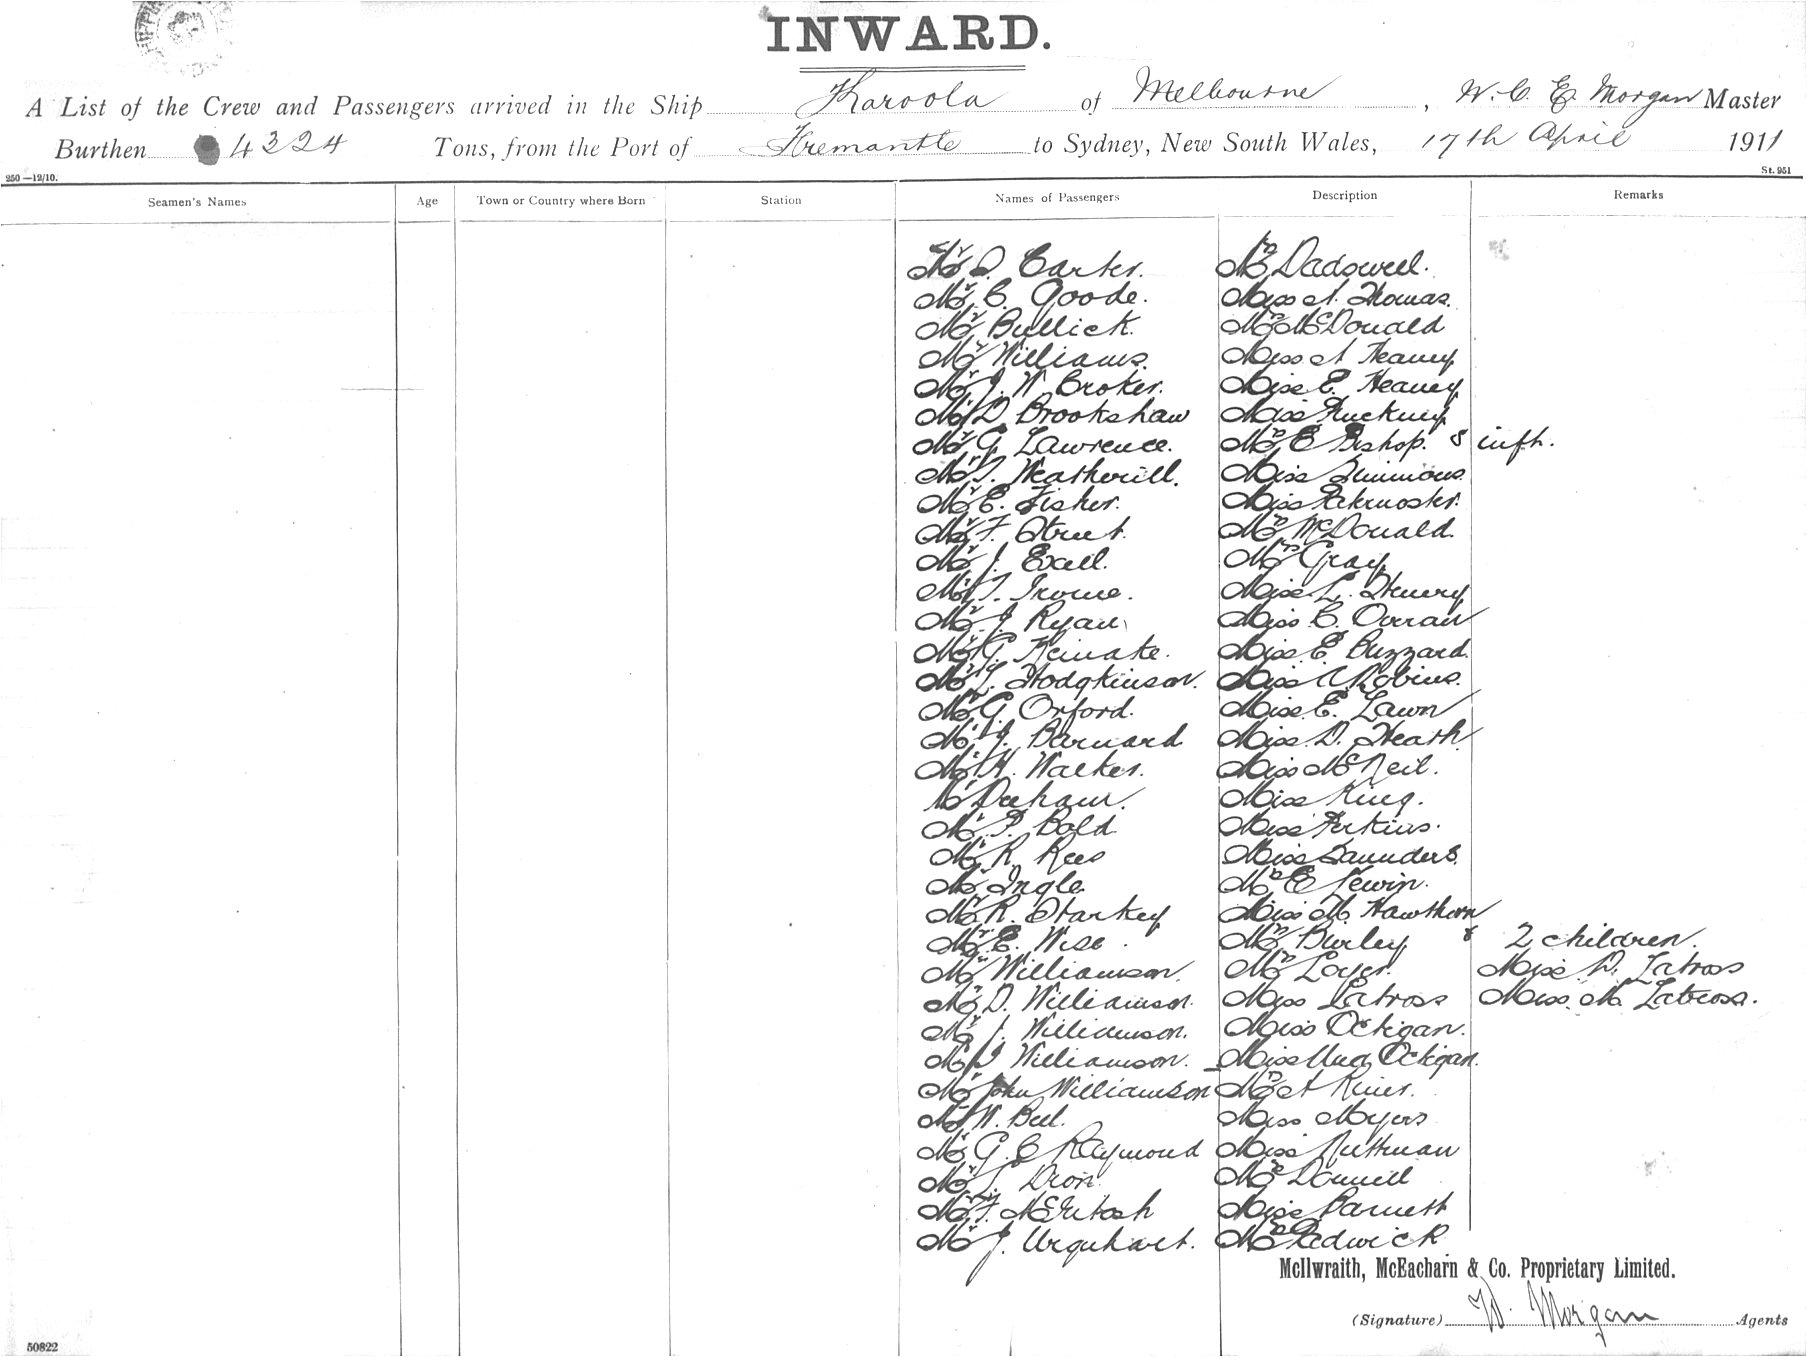 INWARD.
A List of the Crew and Passengers arrived in the Ship Karoola of Melbourne, W. C. E. Morgan Master
Burthen 4324 Tons, from the Port of Fremantle to Sydney, New South Wales, 17th April 1911
250—12/10. St. 951
Seamen's Names Age Town or Country where Born Station Names of Passengers Description Remarks
Mr D. Carter. Mrs Dadswell.
Mr C. Goode. Miss A. Thomas.
Mr Bullick. Mrs McDonald
Mr Williams. Miss A Heaney
Mr J. W Croker. Miss E. Heaney
Mr D Brookshaw Miss
Mr G. Lawrence. Mrs E Bishop. & inft.
Mr T. Weatherill. Miss Simmons.
Mr E. Fisher. Miss Paternoster.
Mr F. Street. Mrs McDonald.
Mr J. Exell. Mrs Gray
Mr T. Irvine. Miss L. Henry
Mr J Ryan Miss C. Overan
Mr G. Miss E. Buzzard.
Mr L. Hodgkinson. Miss A Robins.
Mr G. Orford. Miss E. Lawn
Mr J. Barnard Miss D. Heath
Mr H. Walker. Miss McNeil.
Mr Deehan. Miss King.
Mr P. Bold Miss Perkins.
Mr R. Rees Miss Saunders.
Mr Ingle. Mrs E Lewin.
Mr R. Starkey Miss M. Hawthorn
Mr E. Wise. Mrs Burley & 2 children.
Mr Williamson. Mrs Miss D. Latross
Mr D. Williamson. Miss Latross Miss. M. Latross.
Mr J. Williamson. Miss Ockigan.
Mr J Williamson. Miss Una Ockigan.
Mr John Williamson Mrs A
Mr W. Bell. Miss Myers
Mr G. C Raymond Miss Nuttman
Mr L. Dion. Mrs
Mr F. McIntosh Miss Barnett
Mr J. Urquhart. Mrs Pedwick
McIlwraith, McEacharn & Co. Proprietary Limited.
(Signature) W. Morgan Agents
50822